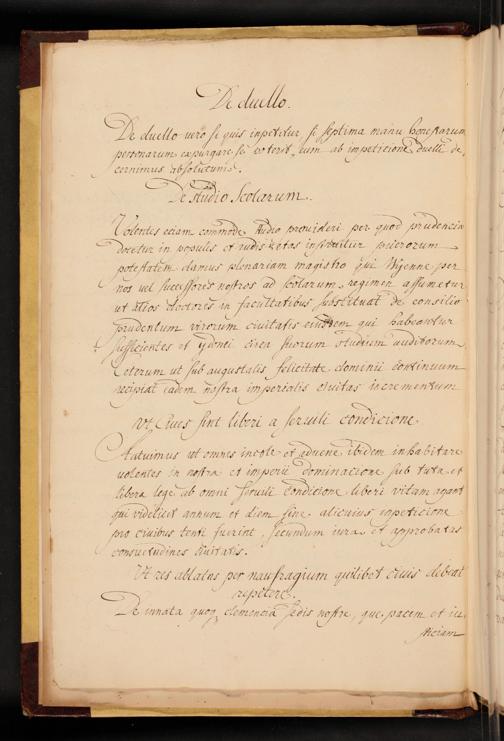 De duello.
De duello vero si quis inpetitur si septima manu honestarum
personarum expurgare se poterit, eum ab inpeticione duelli de-
cernimus absolutum.
De studio Scolarum.
Volentes eciam commode studio provideri per quod prudencia
docetur in populis et rudis etas instruitur puerorum
potestatem damus plenariam magistro qui Wÿenne per
nos vel successores nostros ad scolarum regimen assumetur
ut alios doctores in facultatibus substituat de consilio
prudentum virorum civitatis eiusdem qui habeantur
sufficientes et ydonei circa suorum studium auditorum
Ceterum ut sub augustalis felicitate domenii continuum
recipiat eadem nostra imperialis civitas incrementum
Vt Ciues sint liberi a seruili condicione
Statuimus ut omnes incole et aduene ibidem inhabitare
uolentes in nostra et imperii dominacione sub tuta et
libera lege ab omni seruili condicione liberi vitam agant
qui videlicet annum et diem sine alicuius inpeticione
pro civibus tenti fuerint, secundum iura et approbatas
consuetudines civitatis.
Vt res ablatas per naufragium quilibet civis debeat
repetere.
De innata quoq clemencia sedis nostre, que pacem et ius
ticiam